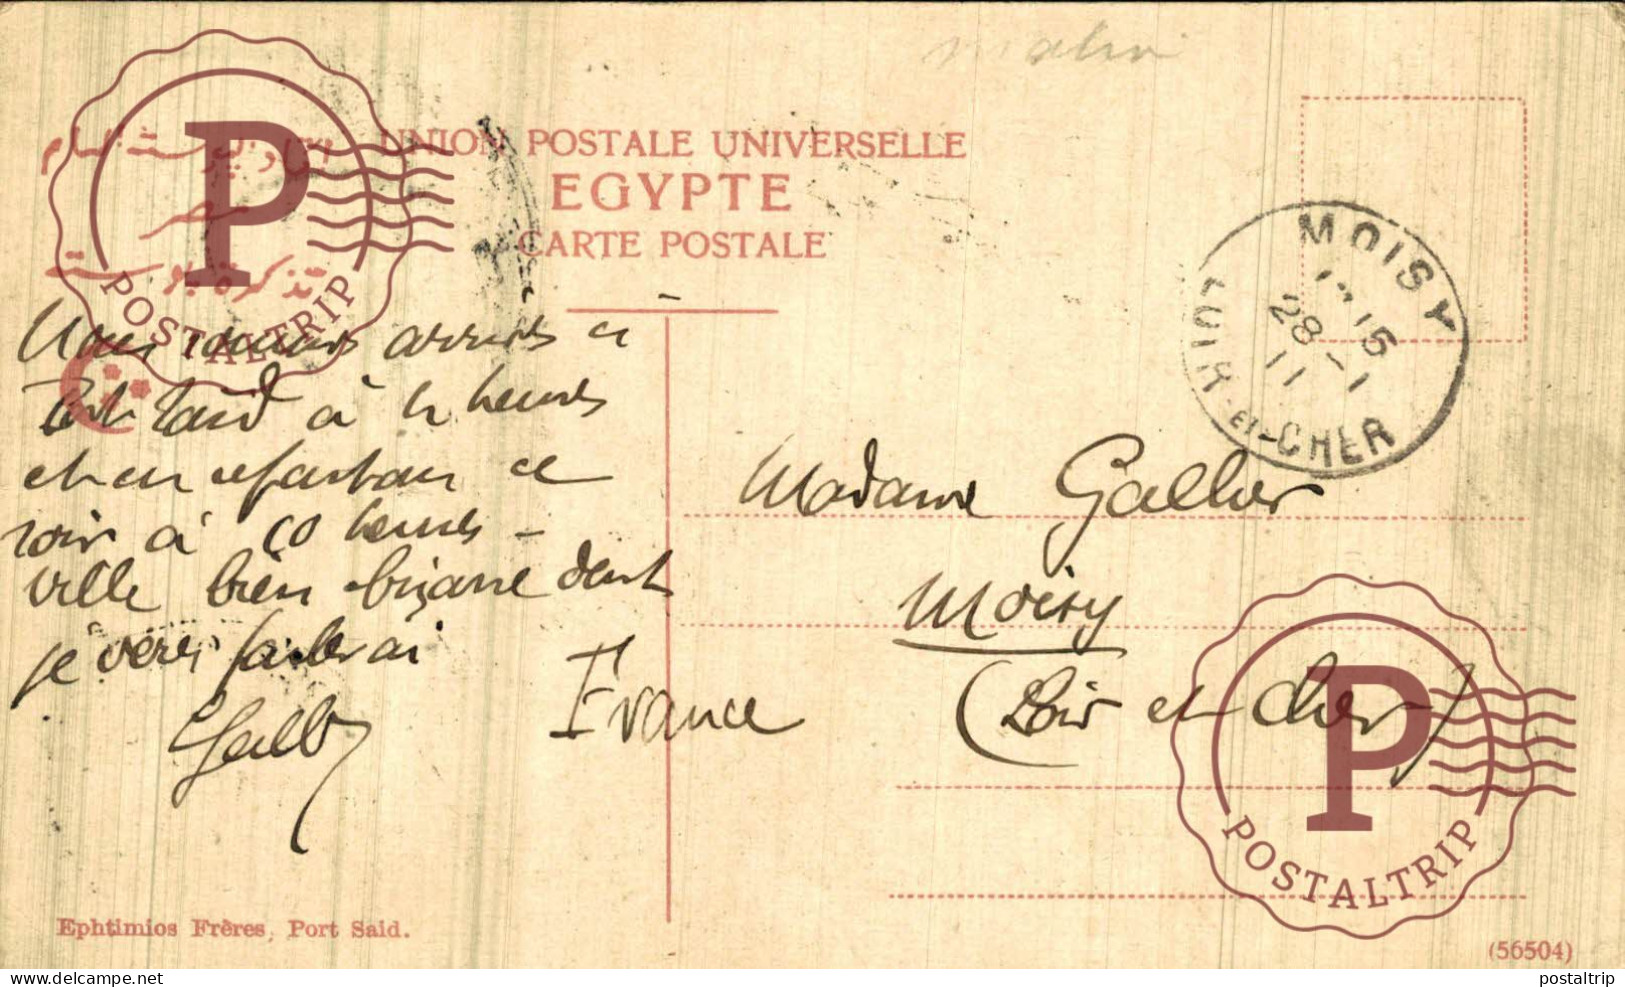 matin
UNION POSTALE UNIVERSELLE
EGYPTE
CARTE POSTALE
تذكرة بوستة
P
POSTALTRIP
MOISY
15
28-1
11
LOIR-ET-CHER
Nous sommes arrivés a
Port Saïd à 4 heures
et en repartons ce
soir à 10 heures -
ville bien bizarre dont
je vous parlerai
Gall
Madame Galher
Moisy
(Loir et Cher)
France
P
POSTALTRIP
Ephtimios Frères, Port Said.
(56504)
postaltrip.delcampe.net
postaltrip